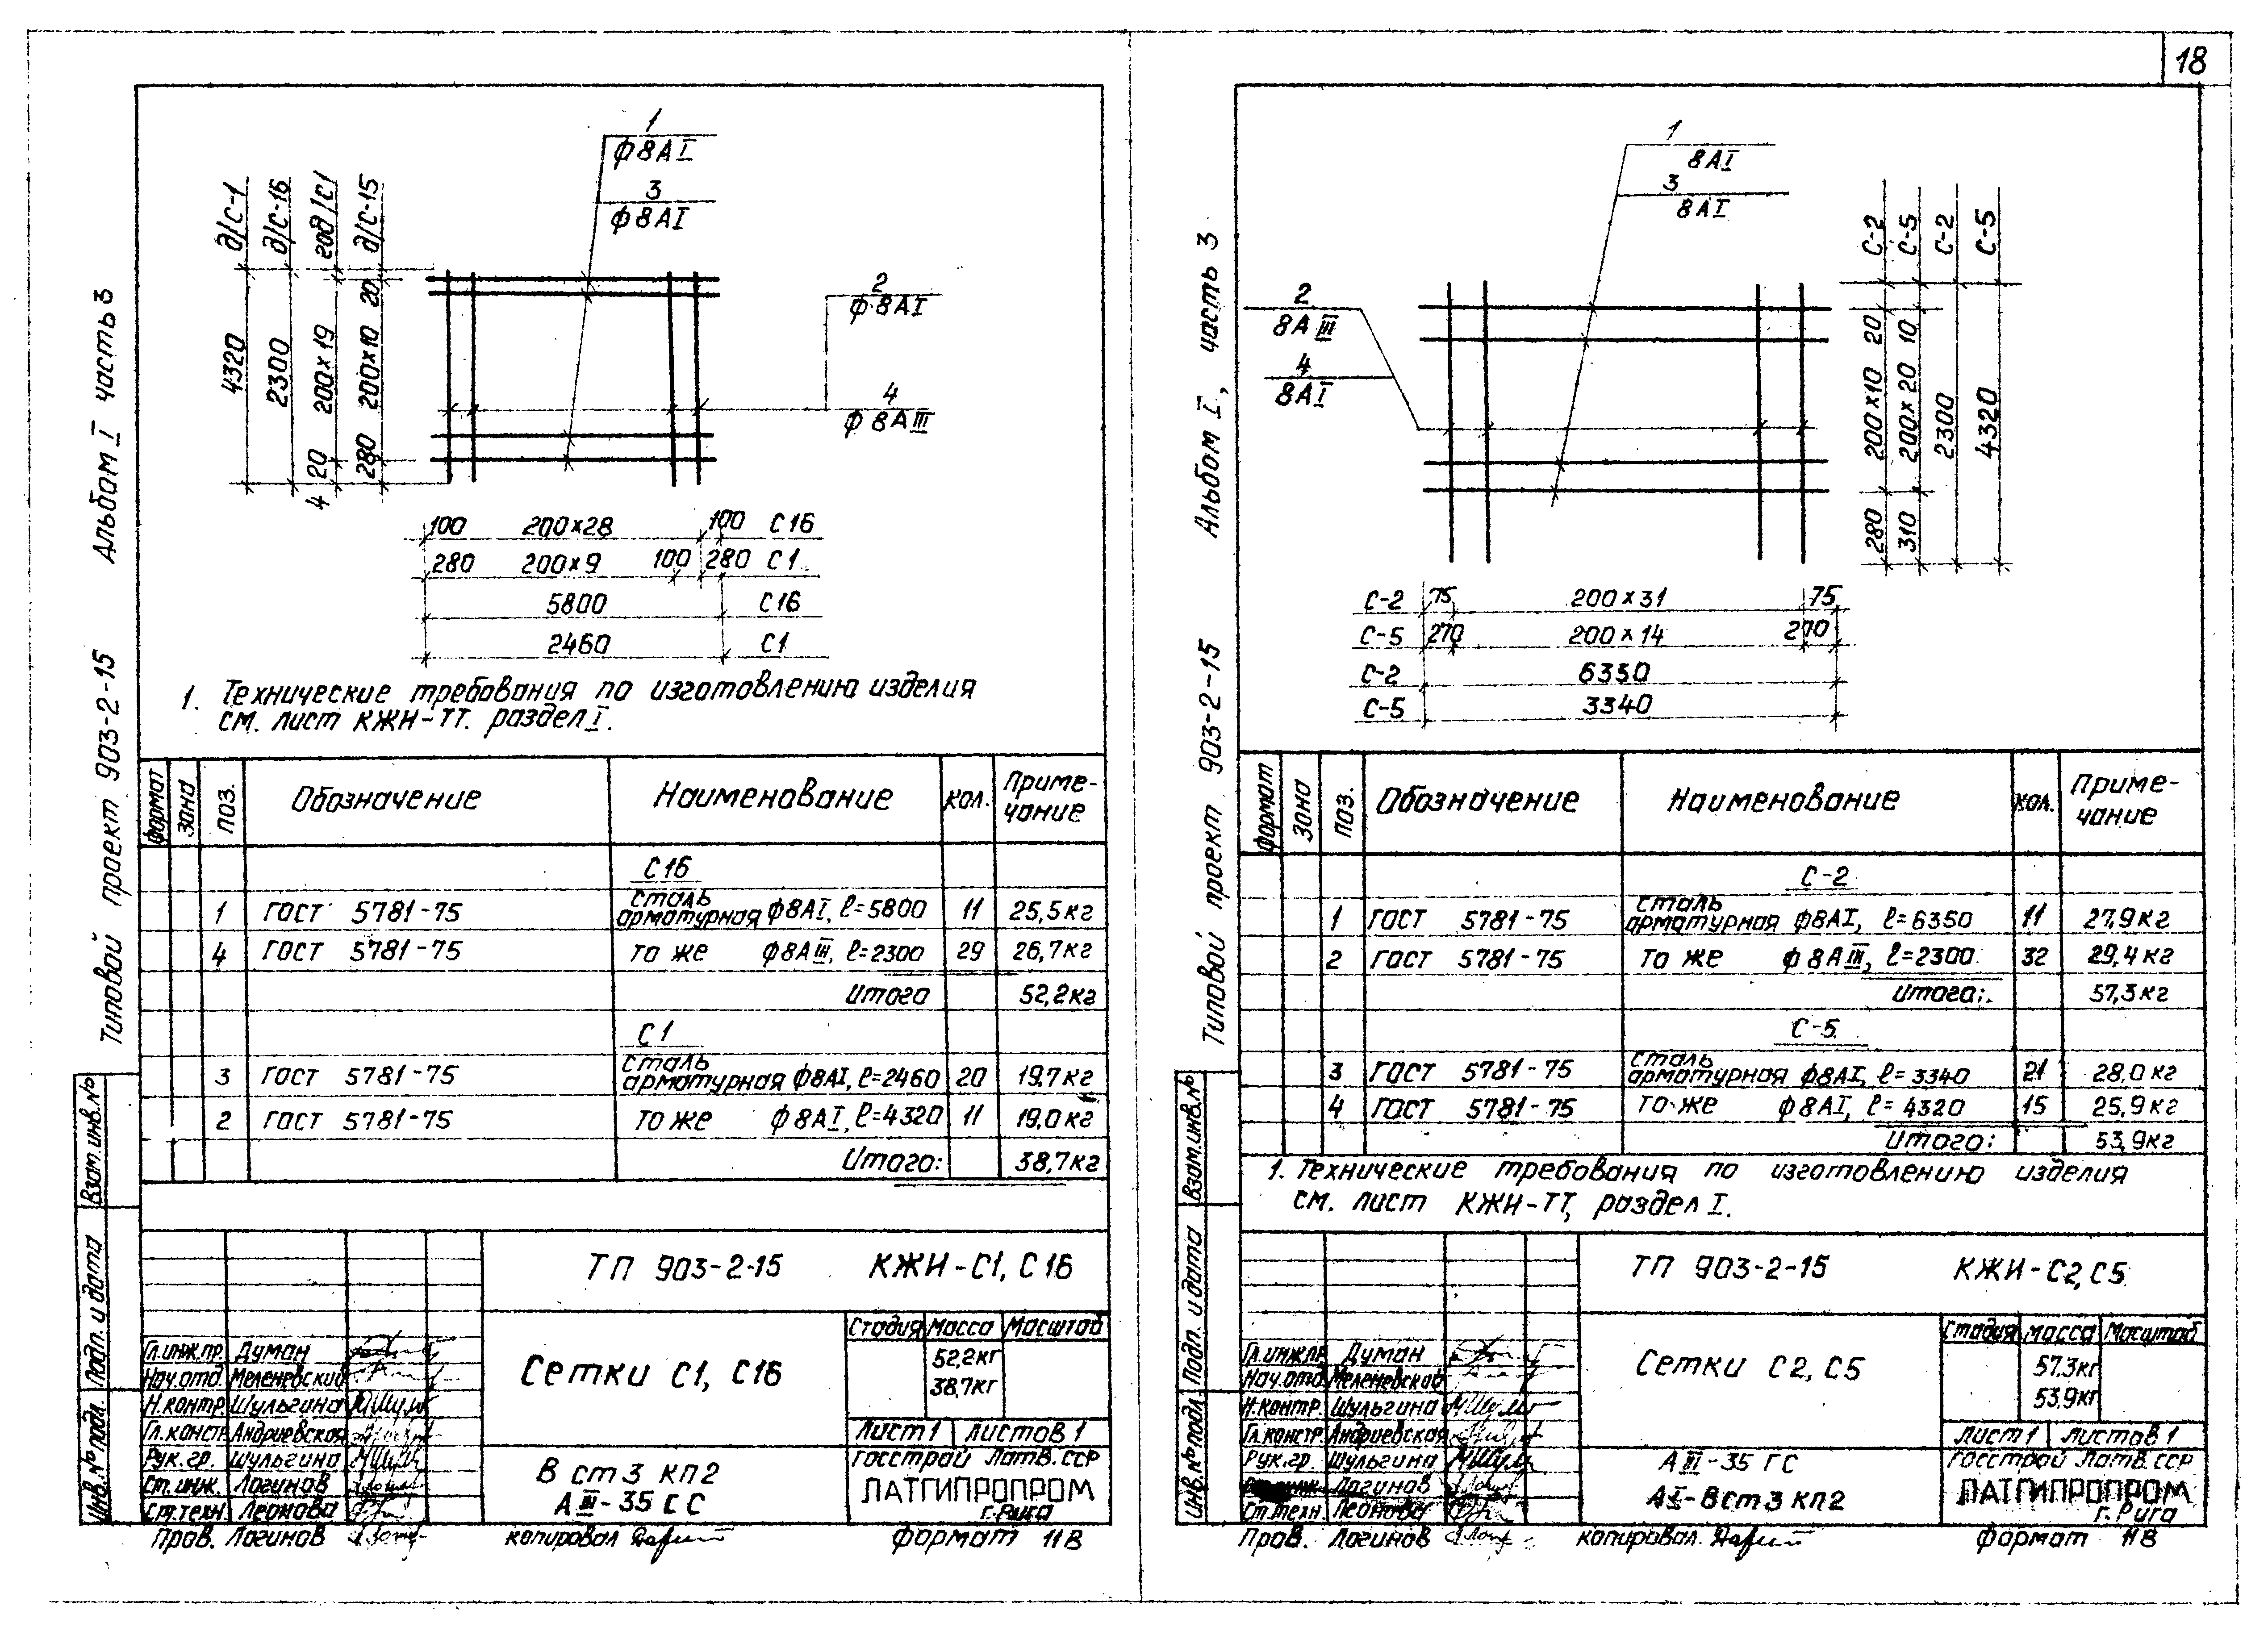 18
Альбом I часть 3
Типовой проект 903-2-15
1
ϕ8АI
3
ϕ8АI
2
ϕ8АI
4
ϕ8АIII
д/С-1
д/С-16
год/С1
д/С-15
4320
2300
20 200×19 4
280 200×10 20
100 200×28 100 С16
280 200×9 100 280 С1
5800 С16
2460 С1
1. Технические требования по изготовлению изделия
см. лист КЖИ-ТТ. раздел I.
формат зона поз. Обозначение Наименование кол. Приме-
чание
С16
1 ГОСТ 5781-75 сталь арматурная ϕ8АI, ℓ=5800 11 25,5кг
4 ГОСТ 5781-75 то же ϕ8АIII, ℓ=2300 29 26,7кг
Итого 52,2кг
С1
3 ГОСТ 5781-75 сталь арматурная ϕ8АI, ℓ=2460 20 19,7кг
2 ГОСТ 5781-75 то же ϕ8АI, ℓ=4320 11 19,0кг
Итого: 38,7кг
Взам.инв.№
Подп. и дата
Инв.№подл.
ТП 903-2-15 КЖИ-С1, С16
Сетки С1, С16
Стадия Масса Масштаб
52,2кг
38,7кг
Лист 1 Листов 1
Гл.инж.пр. Думан
Нач.отд. Меленевский
Н.контр. Шульгина
Гл.констр. Андриевская
Рук.гр. Шульгина
Ст.инж. Логинов
Ст.техн. Леонова
Пров. Логинов
В ст3 кп2
АIII-35 ГС
Госстрой Латв.ССР
ЛАТГИПРОПРОМ
г.Рига
копировал
формат 11В
Альбом I, часть 3
Типовой проект 903-2-15
1
8АI
3
8АI
2
8АIII
4
8АI
С-2
С-5
С-2
С-5
280 200×10 20
310 200×20 10
2300
4320
С-2 75 200×31 75
С-5 270 200×14 270
С-2 6350
С-5 3340
формат зона поз. Обозначение Наименование кол. Приме-
чание
С-2
1 ГОСТ 5781-75 сталь арматурная ϕ8АI, ℓ=6350 11 27,9кг
2 ГОСТ 5781-75 то же ϕ8АIII, ℓ=2300 32 29,4кг
Итого: 57,3кг
С-5
3 ГОСТ 5781-75 сталь арматурная ϕ8АI, ℓ=3340 21 28,0кг
4 ГОСТ 5781-75 то же ϕ8АI, ℓ=4320 15 25,9кг
Итого: 53,9кг
1. Технические требования по изготовлению изделия
см. лист КЖИ-ТТ, раздел I.
Взам.инв.№
Подп. и дата
Инв.№подл.
ТП 903-2-15 КЖИ-С2,С5
Сетки С2, С5
Стадия Масса Масштаб
57,3кг
53,9кг
Лист 1 Листов 1
Гл.инж.пр. Думан
Нач.отд. Меленевский
Н.контр. Шульгина
Гл.констр. Андриевская
Рук.гр. Шульгина
Логинов
Ст.техн Леонова
Пров. Логинов
АIII-35 ГС
АI-Вст3 кп2
Госстрой Латв.ССР
ЛАТГИПРОПРОМ
г.Рига
копировал.
формат 11В